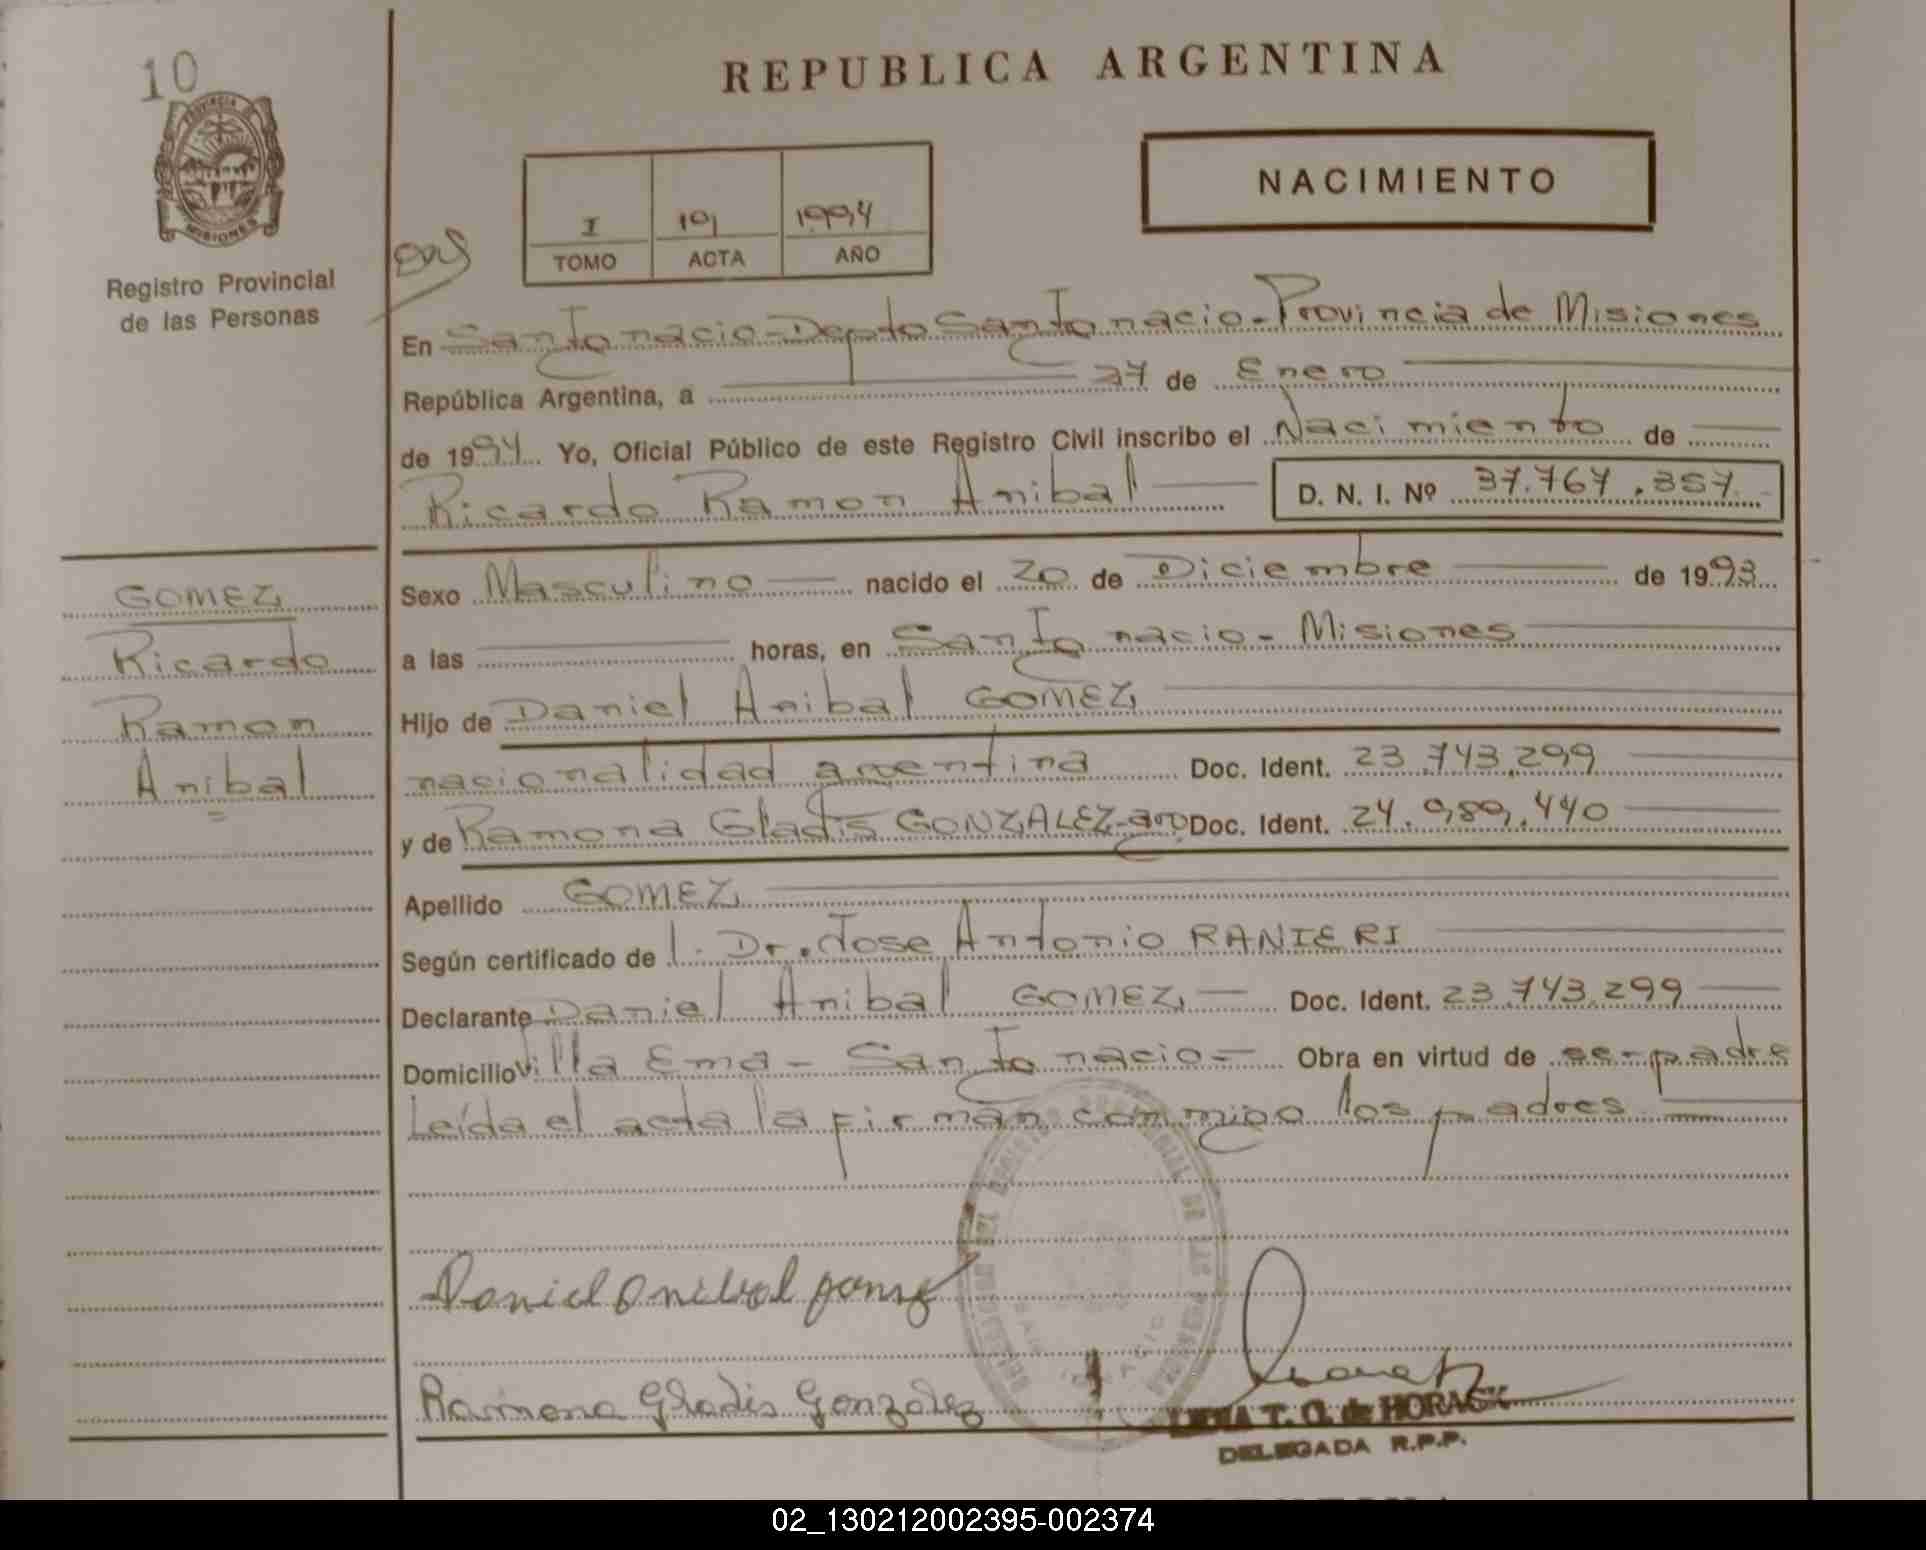 10
REPUBLICA ARGENTINA
PROVINCIA DE
MISIONES
Registro Provincial
de las Personas
NACIMIENTO
I 101 1994
TOMO ACTA AÑO
En San Ignacio - Depto San Ignacio - Provincia de Misiones
República Argentina, a 27 de Enero
de 1994 Yo, Oficial Público de este Registro Civil inscribo el Nacimiento de
Ricardo Ramon Anibal D. N. I. Nº 37.767.357
GOMEZ
Ricardo
Ramon
Anibal
Sexo Masculino nacido el 20 de Diciembre de 1993
a las horas, en San Ignacio - Misiones
Hijo de Daniel Anibal GOMEZ
nacionalidad argentina Doc. Ident. 23.743.299
y de Ramona Gladis GONZALEZ - arg. Doc. Ident. 24.989.440
Apellido GOMEZ
Según certificado de l. Dr. Jose Antonio RANIERI
Declarante Daniel Anibal GOMEZ Doc. Ident. 23.743.299
Domicilio Villa Ema - San Ignacio - Obra en virtud de padre
Leída el acta la firman conmigo los padres
Daniel Anibal Gomez
Ramona Gladis Gonzalez
T. O. de HORACK
DELEGADA R.P.P.
02_130212002395-002374